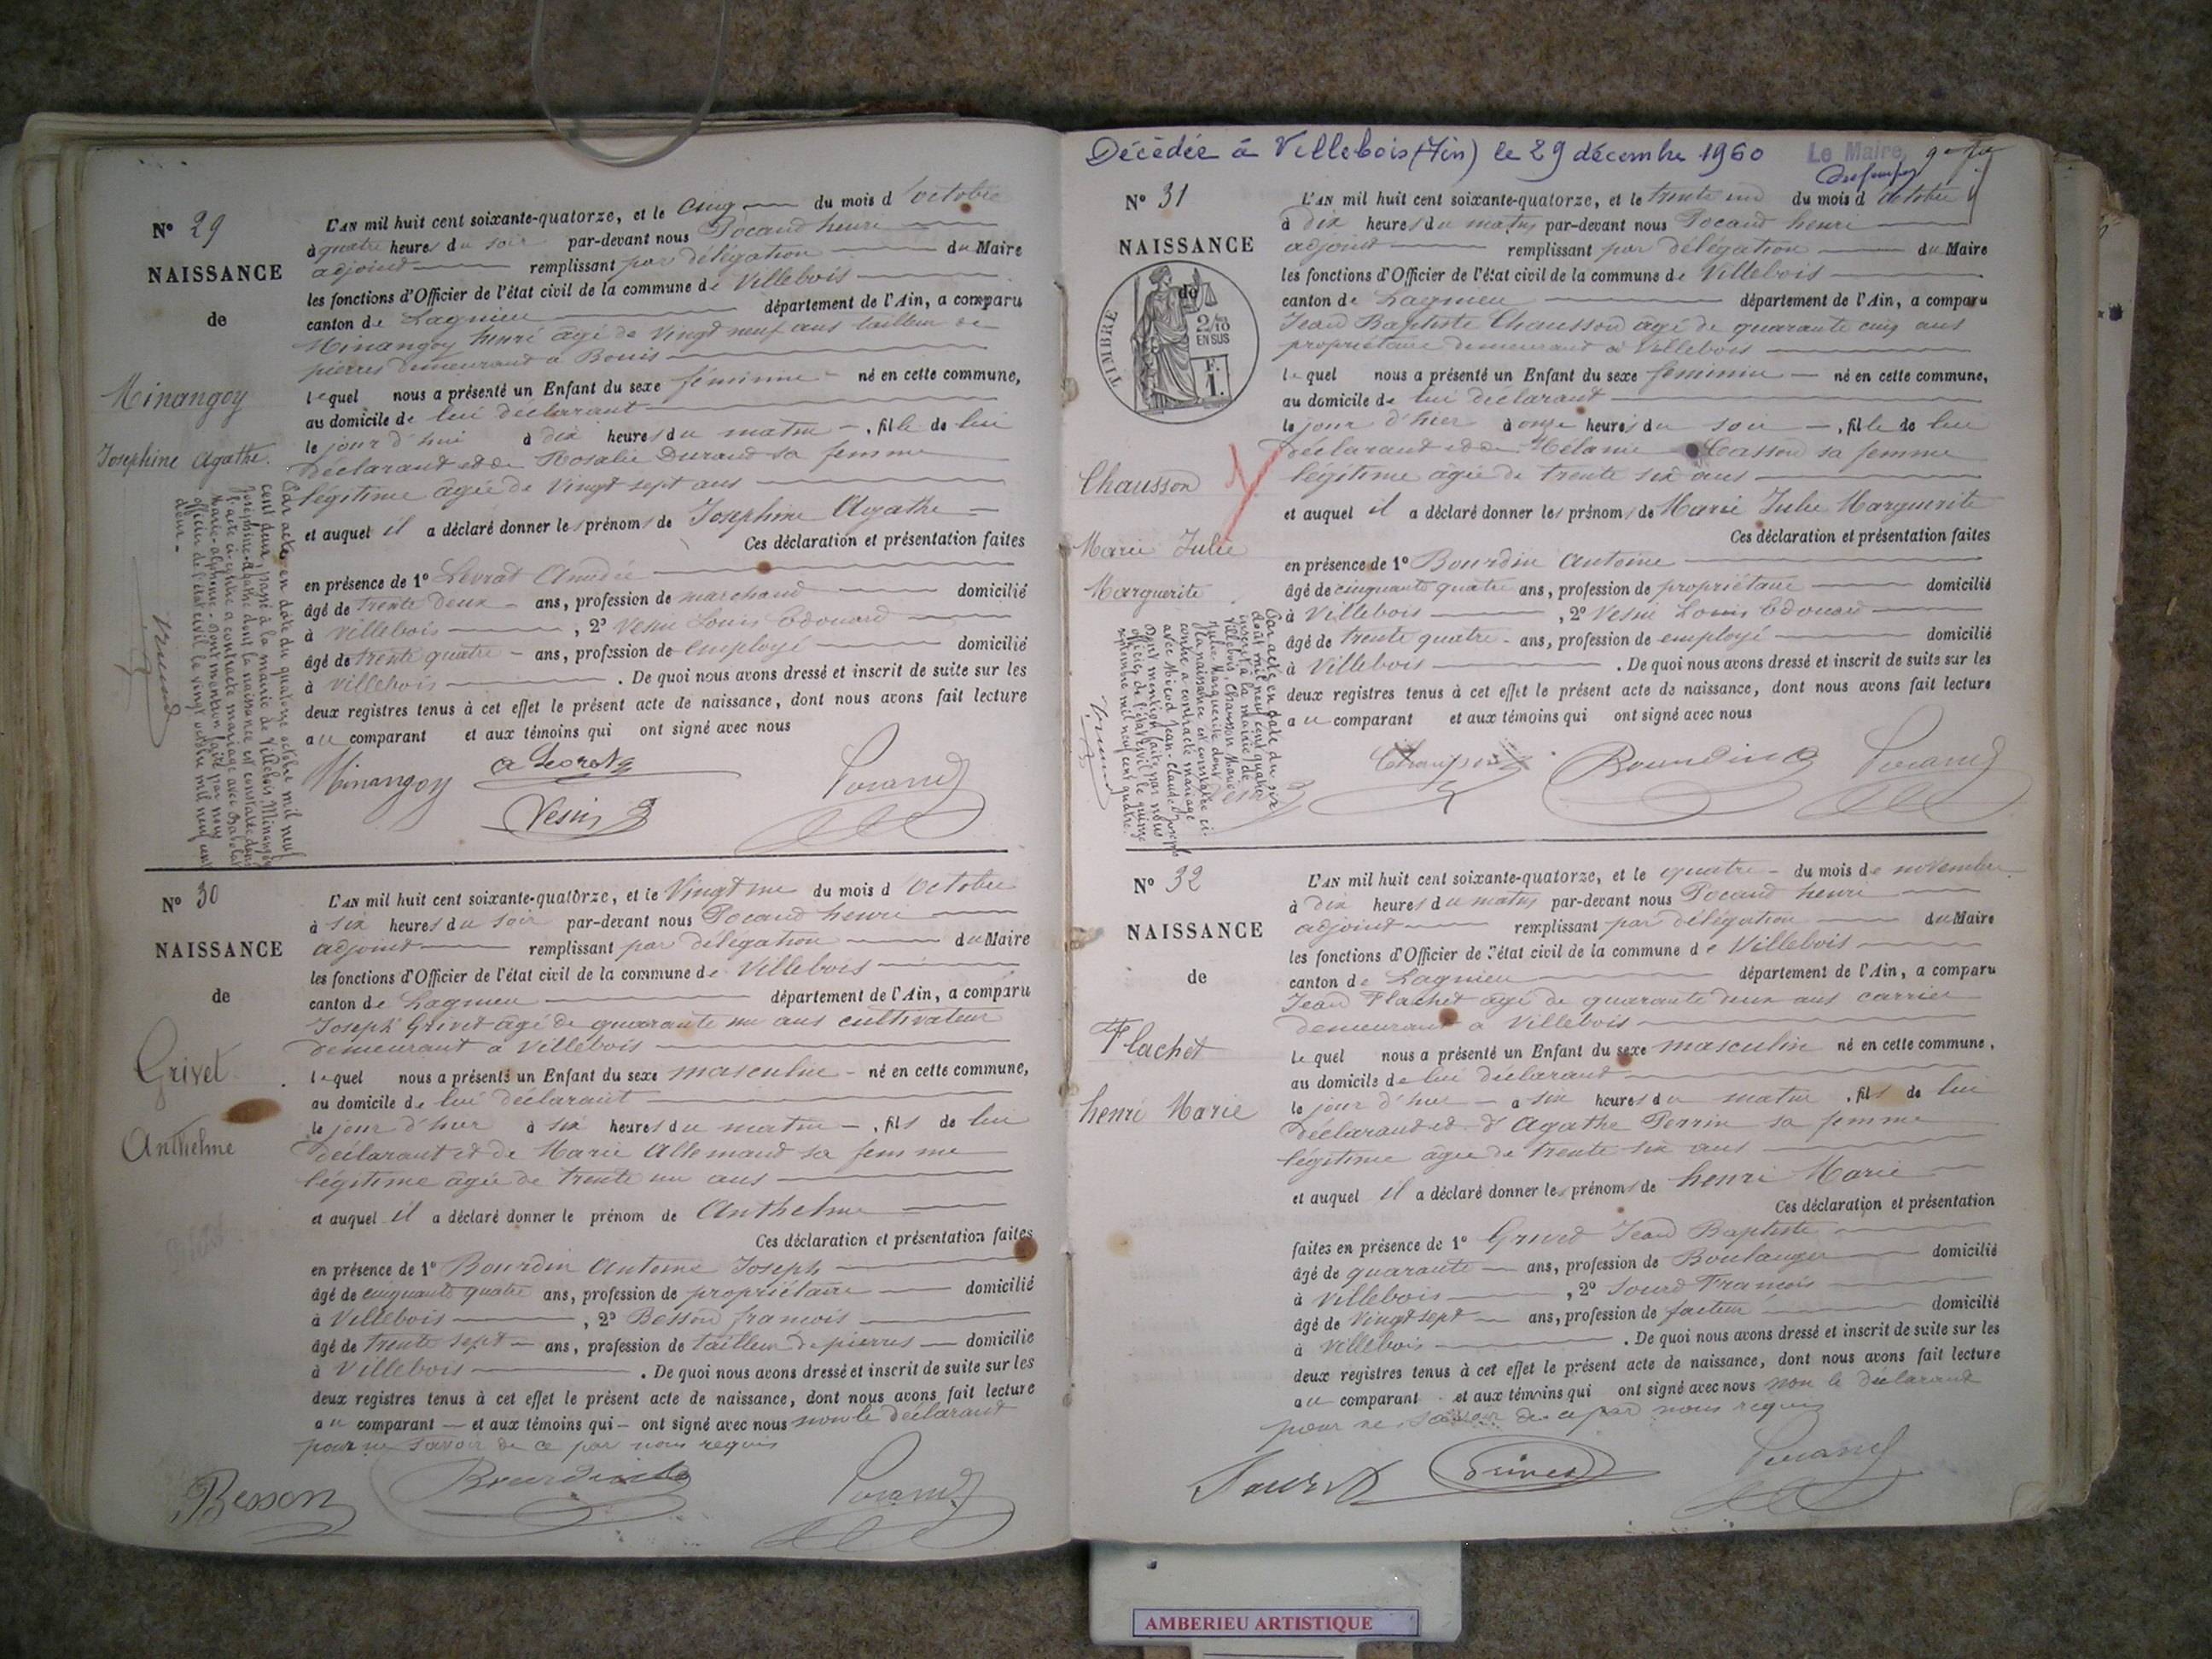 N° 29
NAISSANCE
de
Minangoy
Josephine Agathe.
L'AN mil huit cent soixante-quatorze, et le cinq du mois d'octobre
à quatre heures du soir par-devant nous Pocand henri
adjoint remplissant par délégation du Maire
les fonctions d'Officier de l'état civil de la commune de Villebois
canton de Lagnieu département de l'Ain, a comparu
Minangoy henri âgé de Vingt neuf ans tailleur de
pierres demeurant a Bouis
lequel nous a présenté un Enfant du sexe féminine né en cette commune,
au domicile de lui déclarant
le jour d'hui à dix heures du matin, fille de lui
déclarant et de Rosalie Durand sa femme
légitime âgée de Vingt sept ans
et auquel il a déclaré donner les prénoms de Josephine Agathe
Ces déclaration et présentation faites
en présence de 1° Levrat Amédée
âgé de trente deux ans, profession de marchand domicilié
à Villebois, 2° Vesin Louis Edouard
âgé de trente quatre ans, profession de employé domicilié
à Villebois. De quoi nous avons dressé et inscrit de suite sur les
deux registres tenus à cet effet le présent acte de naissance, dont nous avons fait lecture
au comparant et aux témoins qui ont signé avec nous
Par acte en date du quatorze octobre mil neuf
cent deux, passé à la mairie de Villebois Minangoy
Joséphine-Agathe dont la naissance est constatée dans
l'acte ci-contre a contracté mariage avec
Marie-Alphonse. Dont mention faite par nous
officier de l'état civil le vingt octobre mil neuf cent
deux.
Minangoy
Vesin
Pocand
N° 30
NAISSANCE
de
Grivet
Anthelme
L'AN mil huit cent soixante-quatorze, et le Vingt un du mois d'octobre
à six heures du soir par-devant nous Pocand henri
adjoint remplissant par délégation du Maire
les fonctions d'Officier de l'état civil de la commune de Villebois
canton de Lagnieu département de l'Ain, a comparu
Joseph Grivet âgé de quarante un ans cultivateur
demeurant a Villebois
lequel nous a présenté un Enfant du sexe masculin né en cette commune,
au domicile de lui déclarant
le jour d'hier à six heures du matin, fils de lui
déclarant et de Marie Allemand sa femme
légitime âgée de trente un ans
et auquel il a déclaré donner le prénom de Anthelme
Ces déclaration et présentation faites
en présence de 1° Bourdin Antoine Joseph
âgé de cinquante quatre ans, profession de propriétaire domicilié
à Villebois, 2° Besson francois
âgé de trente sept ans, profession de tailleur de pierres domicilié
à Villebois. De quoi nous avons dressé et inscrit de suite sur les
deux registres tenus à cet effet le présent acte de naissance, dont nous avons fait lecture
au comparant et aux témoins qui ont signé avec nous non le déclarant
pour ne savoir de ce par nous requis
Besson
Bourdin
Pocand
Décédée à Villebois (Ain) le 29 décembre 1960
Le Maire
N° 31
NAISSANCE
de
TIMBRE
2/10
EN SUS
1 F.
Chausson
Marie Julie
Marguerite
L'AN mil huit cent soixante-quatorze, et le trente un du mois d'octobre
à dix heures du matin par-devant nous Pocand henri
adjoint remplissant par délégation du Maire
les fonctions d'Officier de l'état civil de la commune de Villebois
canton de Lagnieu département de l'Ain, a comparu
Jean Baptiste Chausson âgé de quarante cinq ans
propriétaire demeurant à Villebois
lequel nous a présenté un Enfant du sexe féminin né en cette commune,
au domicile de lui déclarant
le jour d'hier à onze heures du soir, fille de lui
déclarant et de Mélanie Casson sa femme
légitime âgée de trente six ans
et auquel il a déclaré donner les prénoms de Marie Julie Marguerite
Ces déclaration et présentation faites
en présence de 1° Bourdin Antoine
âgé de cinquante quatre ans, profession de propriétaire domicilié
à Villebois, 2° Vesin Louis Edouard
âgé de trente quatre ans, profession de employé domicilié
à Villebois. De quoi nous avons dressé et inscrit de suite sur les
deux registres tenus à cet effet le présent acte de naissance, dont nous avons fait lecture
au comparant et aux témoins qui ont signé avec nous
Par acte en date du six
août mil neuf cent quatre
inscrit à la mairie de
Villebois, Chausson Marie
Julie Marguerite dont
la naissance est constatée ci-
contre a contracté mariage
avec Micand Jean-Claude Joseph
Dont mention faite par nous
officier de l'état civil le quinze
septembre mil neuf cent quatre.
Chausson
Bourdin
Pocand
N° 32
NAISSANCE
de
Flachet
henri Marie
L'AN mil huit cent soixante-quatorze, et le quatre du mois de novembre
à dix heures du matin par-devant nous Pocand henri
adjoint remplissant par délégation du Maire
les fonctions d'Officier de l'état civil de la commune de Villebois
canton de Lagnieu département de l'Ain, a comparu
Jean Flachet âgé de quarante deux ans carrier
demeurant a Villebois
lequel nous a présenté un Enfant du sexe masculin né en cette commune,
au domicile de lui déclarant
le jour d'hier a six heures du matin, fils de lui
déclarant et d'Agathe Perrin sa femme
légitime âgée de trente six ans
et auquel il a déclaré donner les prénoms de henri Marie
Ces déclaration et présentation
faites en présence de 1° Grived Jean Baptiste
âgé de quarante ans, profession de Boulanger domicilié
à Villebois, 2° Sourd Francois
âgé de Vingt sept ans, profession de facteur domicilié
à Villebois. De quoi nous avons dressé et inscrit de suite sur les
deux registres tenus à cet effet le présent acte de naissance, dont nous avons fait lecture
au comparant et aux témoins qui ont signé avec nous non le déclarant
pour ne savoir de ce par nous requis
Sourd
Grived
Pocand
AMBERIEU ARTISTIQUE